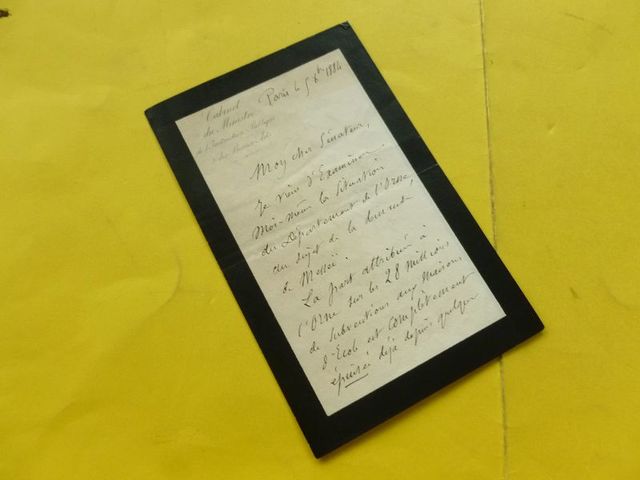 Cabinet
du Ministre
de l'Instruction Publique
et des Beaux-Arts
Paris le 5 Xbre 1884
Mon cher Sénateur,
Je viens d'examiner
moi-même la situation
du Département de l'Orne,
au sujet de la demande
de Messei.
La part attribuée à
l'Orne sur les 28 millions
de subventions aux maisons
d'École est complètement
épuisée déjà depuis quelque